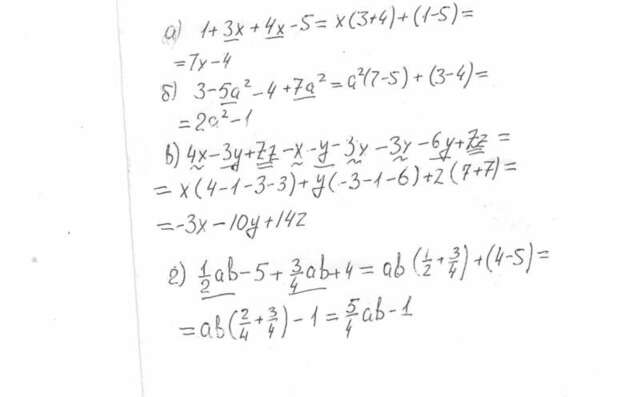 а) 1+3x+4x-5=x(3+4)+(1-5)=
=7x-4
б) 3-5a²-4+7a²=a²(7-5)+(3-4)=
=2a²-1
в) 4x-3y+7z-x-y-3x-3x-6y+7z=
=x(4-1-3-3)+y(-3-1-6)+z(7+7)=
=-3x-10y+14z
г) 1/2ab-5+3/4ab+4=ab(1/2+3/4)+(4-5)=
=ab(2/4+3/4)-1=5/4ab-1